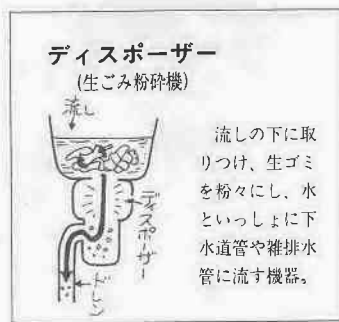 ディスポーザー
(生ごみ粉砕機)
流し
ディスポーザー
ドレン
流しの下に取
りつけ、生ゴミ
を粉々にし、水
といっしょに下
水道管や雑排水
管に流す機器。